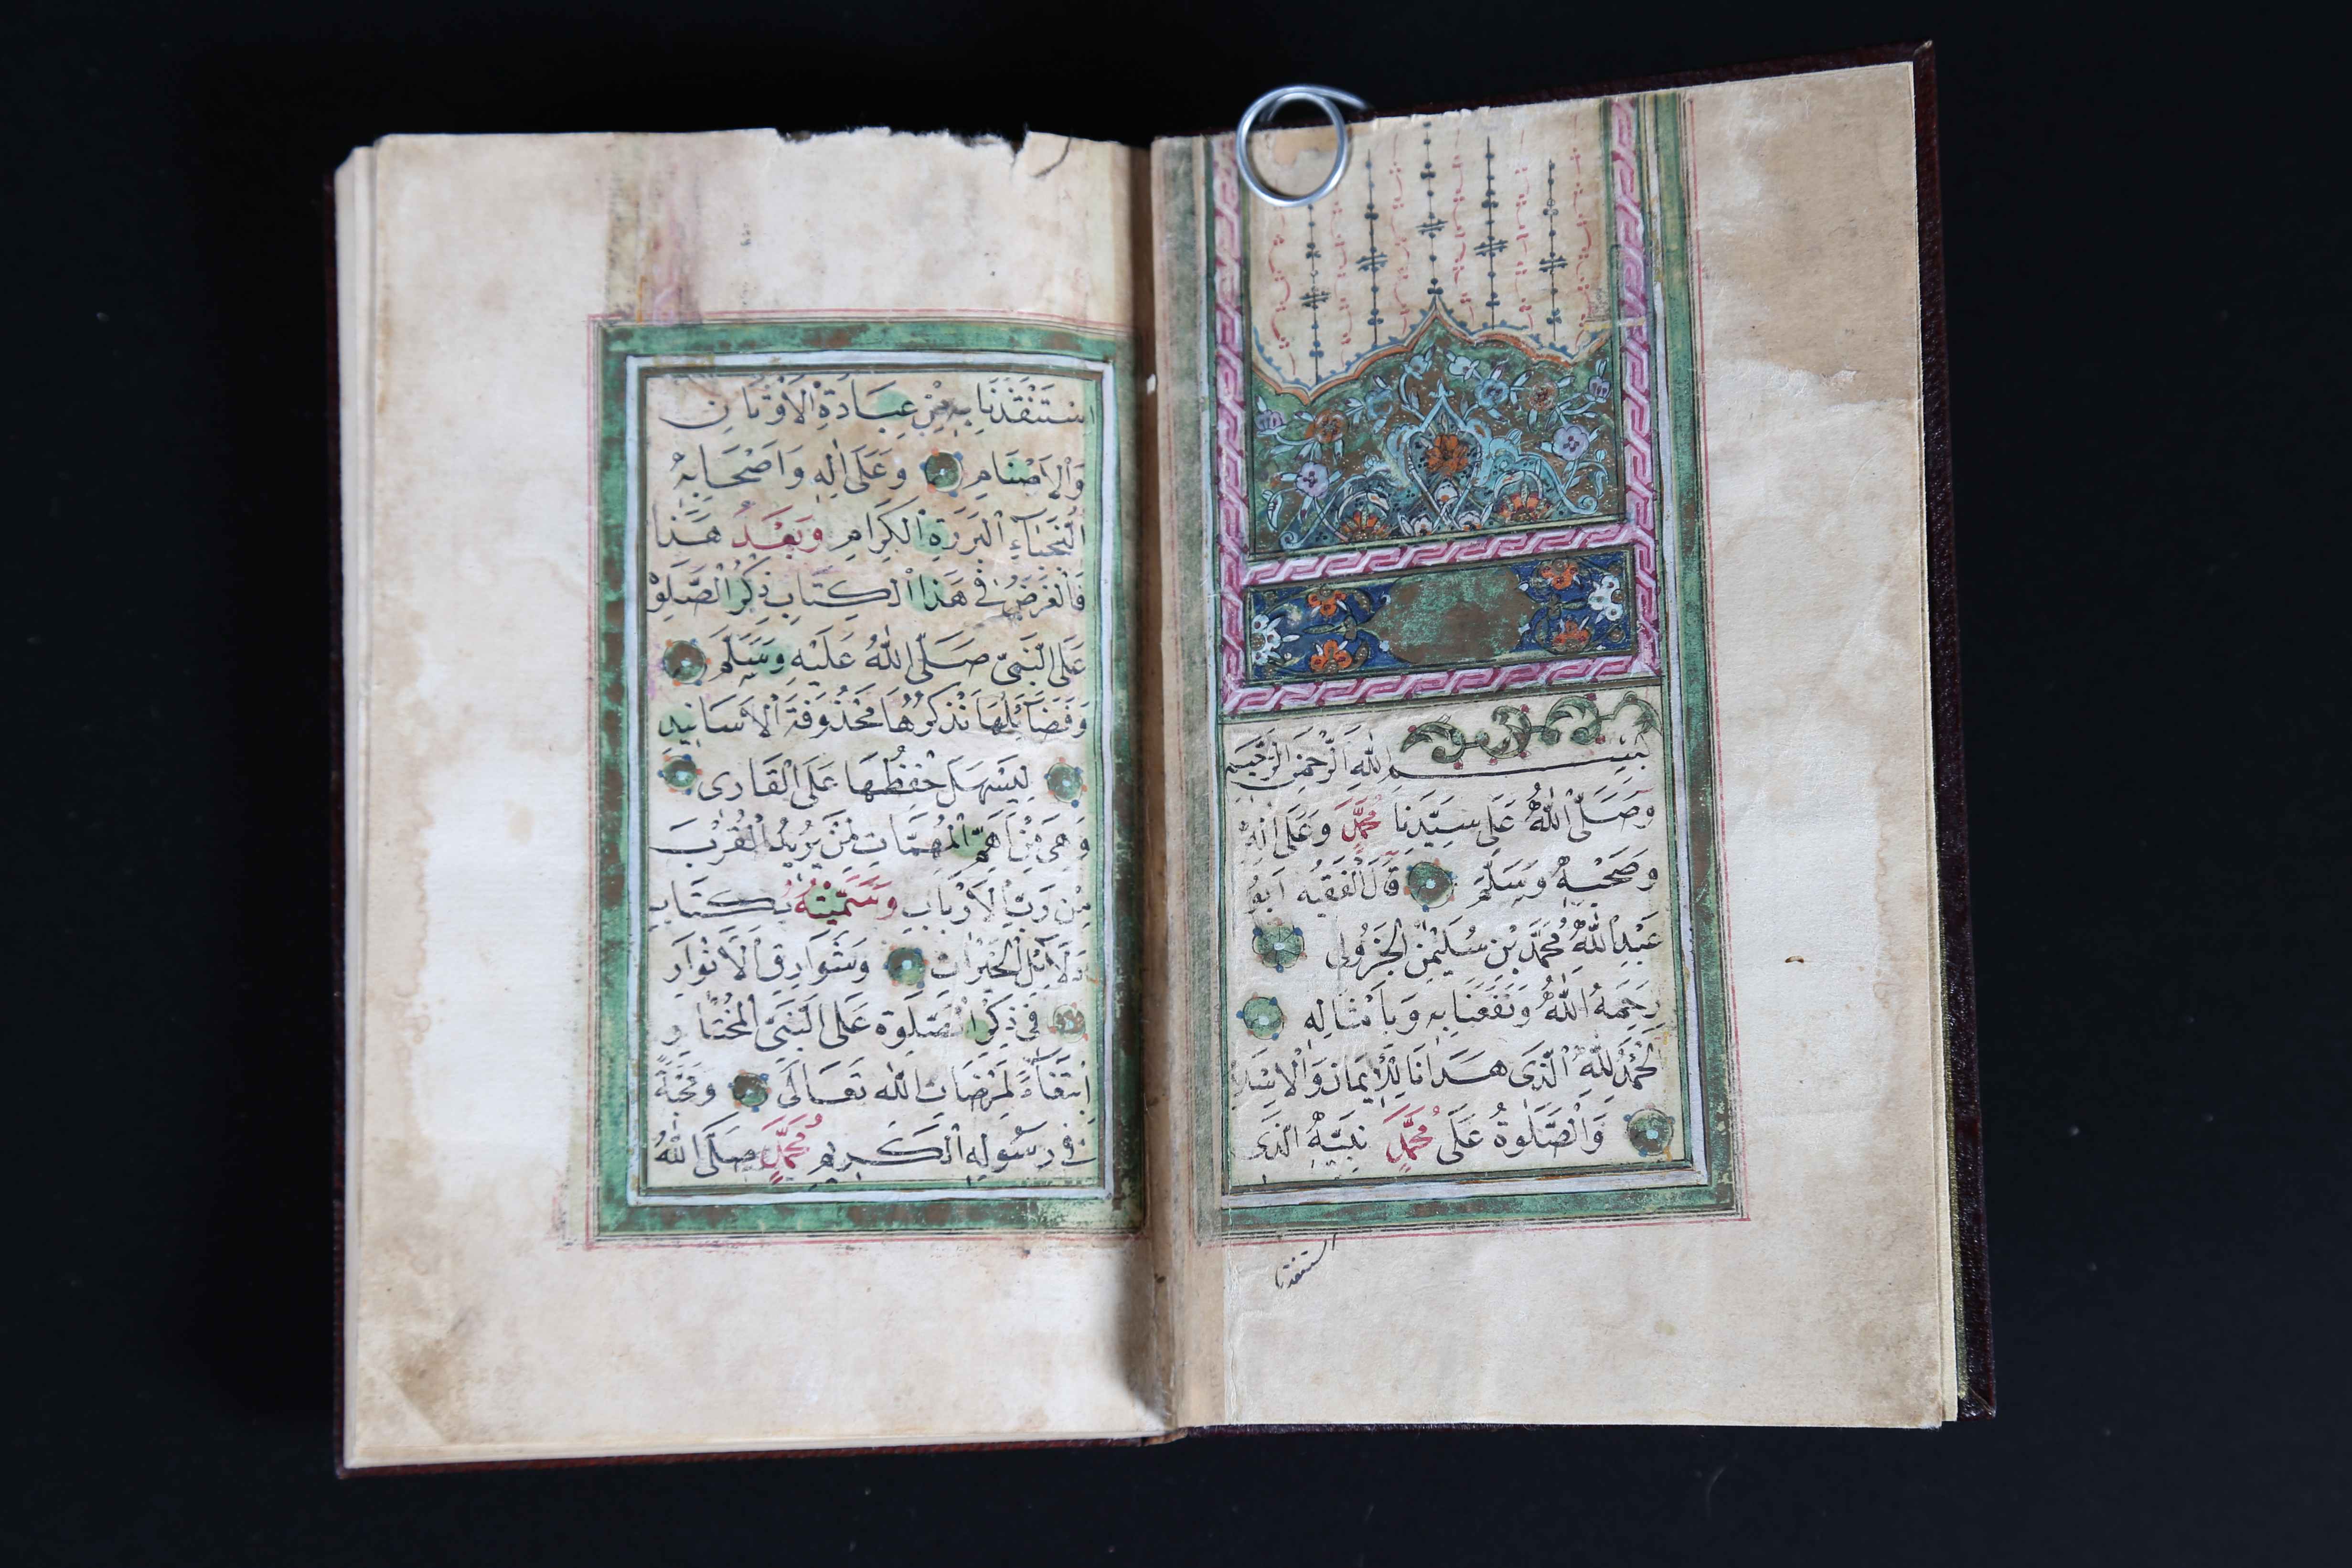 بِسْمِ اللّٰهِ الرَّحْمٰنِ الرَّحِيمِ
وَصَلَّى اللّٰهُ عَلٰى سَيِّدِنَا مُحَمَّدٍ وَعَلٰى اٰلِهِ
وَصَحْبِهِ وَسَلَّمَ قَالَ الْفَقِيهُ اَبُو
عَبْدِ اللّٰهِ مُحَمَّدُ بْنُ سُلَيْمٰنَ الْجَزُولِى
رَحِمَهُ اللّٰهُ وَنَفَعَنَا بِهِ وَبِاَمْثَالِهِ
اَلْحَمْدُ لِلّٰهِ الَّذِى هَدَانَا لِلْاِيمَانِ وَالْاِسْلَامِ
وَالصَّلٰوةُ عَلٰى مُحَمَّدٍ نَبِيِّهِ الَّذِى
استنقذنا
اسْتَنْقَذَنَا بِهِ مِنْ عِبَادَةِ الْاَوْثَانِ
وَالْاَصْنَامِ وَعَلٰى اٰلِهِ وَاَصْحَابِهِ
النُّجَبَآءِ الْبَرَرَةِ الْكِرَامِ وَبَعْدَ هٰذَا
فَالْغَرَضُ فِى هٰذَا الْكِتَابِ ذِكْرُ الصَّلٰوةِ
عَلَى النَّبِىِّ صَلَّى اللّٰهُ عَلَيْهِ وَسَلَّمَ
وَفَضَآئِلِهَا نَذْكُرُهَا مَحْذُوفَةَ الْاَسَانِيدِ
لِيَسْهَلَ حِفْظُهَا عَلَى الْقَارِى
وَهِىَ مِنْ اَهَمِّ الْمُهِمَّاتِ لِمَنْ يُرِيدُ الْقُرْبَ
مِنْ رَبِّ الْاَرْبَابِ وَسَمَّيْتُهُ بِكِتَابِ
دَلَآئِلِ الْخَيْرَاتِ وَشَوَارِقِ الْاَنْوَارِ
فِى ذِكْرِ الصَّلٰوةِ عَلَى النَّبِىِّ الْمُخْتَارِ
اِبْتِغَآءً لِمَرْضَاتِ اللّٰهِ تَعَالٰى وَمَحَبَّةً
فِى رَسُولِهِ الْكَرِيمِ مُحَمَّدٍ صَلَّى اللّٰهُ